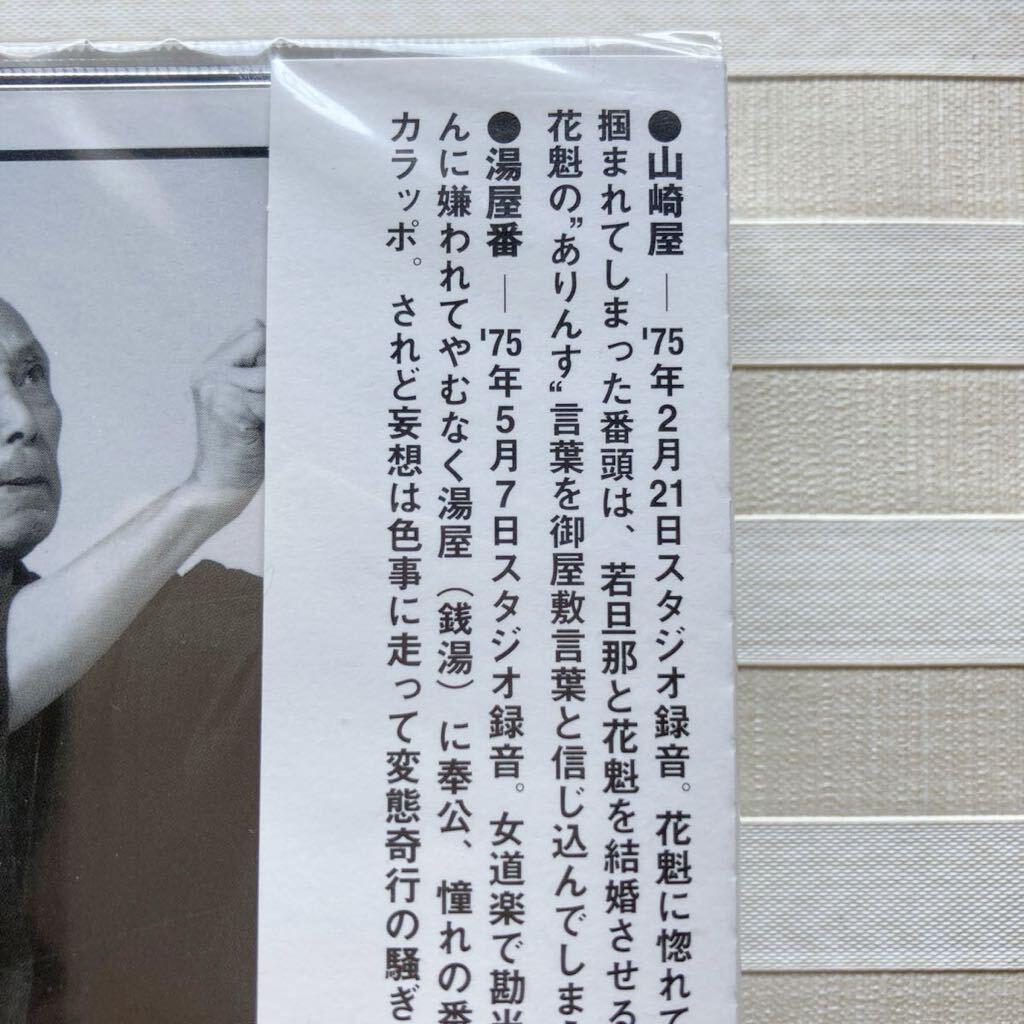 ●山崎屋 ― '75年2月21日スタジオ録音。花魁に惚れて
掴まれてしまった番頭は、若旦那と花魁を結婚させる
花魁の"ありんす"言葉を御屋敷言葉と信じ込んでしま
●湯屋番 ― '75年5月7日スタジオ録音。女道楽で勘
んに嫌われてやむなく湯屋（銭湯）に奉公、憧れの番
カラッポ。されど妄想は色事に走って変態奇行の騒ぎ